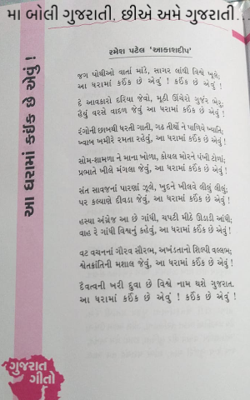 મા બોલી ગુજરાતી, છીએ અમે ગુજરાતી...
રમેશ પટેલ 'આકાશદીપ'
જગ પોથીઓ વાર્તા માંડે, સાગર લાંઘી વિશ્વ ખૂલે;
આ ધરામાં કઈંક છે એવું ! કઈંક છે એવું !
દે આવકારો દરિયા જેવો, મૂઠી ઊંચેરો ગુર્જર બેટ;
હૈયું વરસે વાદળ જેવું આ ધરામાં કઈંક છે એવું !
રંગોની છાબથી ધરતી ગાતી, ગઢ તીર્થો ને પાળિયે ખ્યાતિ;
ખ્વાબ ખમીરે રમતા રહેવું, આ ધરામાં કઈંક છે એવું !
સોમ-શામળા ને માના ખોળા, કોયલ મોરને પંખી ટોળાં;
પ્રભાતે ખીલે મંગલા જેવું, આ ધરામાં કઈંક છે એવું !
સંત સાવજનાં પારણાં ઝૂલે, ખુદને ખીલરે લીલું લીલું;
પર કલ્યાણે દીવડા જેવું, આ ધરામાં કઈંક છે એવું !
હસ્યા અંગ્રેજ આ છે ગાંધી, ચપટી મીઠે ઊડાડી આંધી;
વાહ રે ગાંધી વિશ્વનું કહેવું, આ ધરામાં કઈંક છે એવું !
વટ વચનનાં ગૌરવ સૌરભ, અખંડતાનો શિલ્પી વલ્લભ;
શ્વેતક્રાંતિની મશાલ જેવું, આ ધરામાં કઈંક છે એવું !
દેવત્વની ખરી દુવા છે વિશ્વે નામ થશે ગુજરાત.
આ ધરામાં કઈંક છે એવું ! કઈંક છે એવું !
આ ધરામાં કઈંક છે એવું !
ગુજરાત
ગીતો